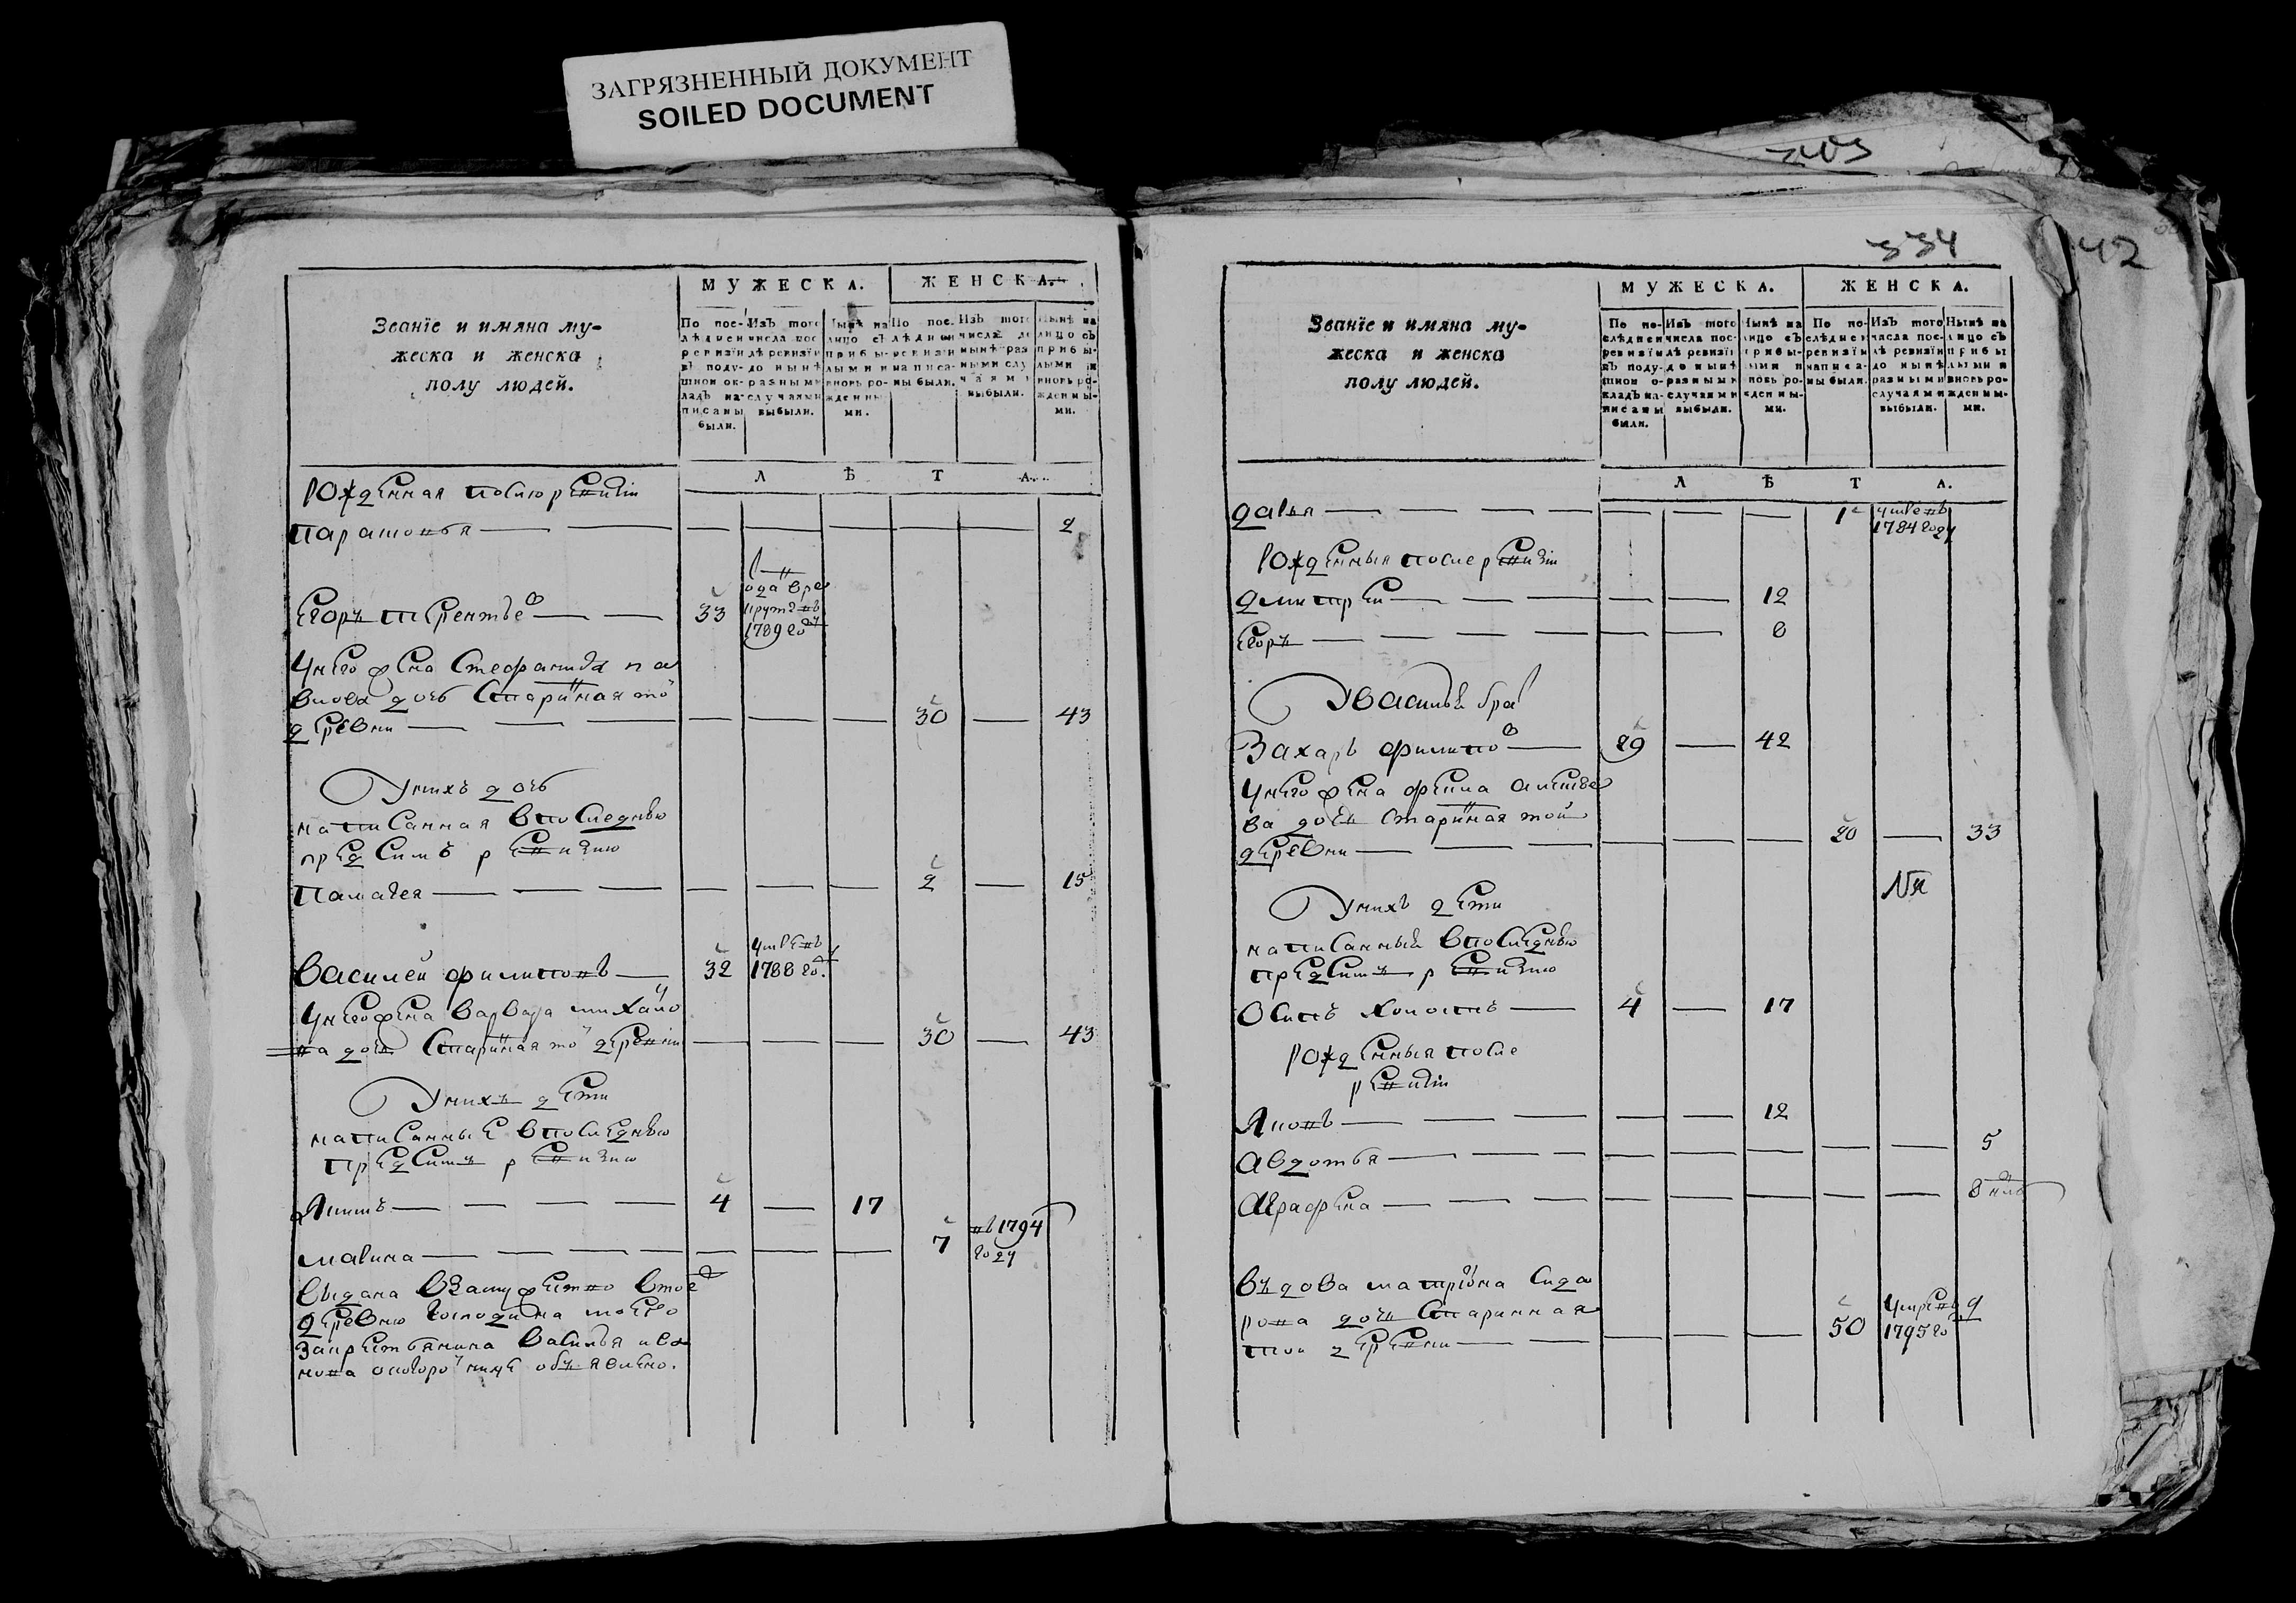 ЗАГРЯЗНЕННЫЙ ДОКУМЕНТ
SOILED DOCUMENT
Званїе и имяна му-
жеска и женска
полу людей.
МУЖЕСКА.
ЖЕНСКА.
По пос-
лѣдней
ревизїи
въ поду-
шной ок-
ладъ на-
писаны
были.
Изъ того
числа пос
лѣ ревизїи
до нынѣ
разными
случаями
выбыли.
Нынѣ на
лицо съ
прибы-
лыми и
вновь ро-
жденны-
ми.
По пос.
лѣдней
ревизїи
написа-
ны были.
Изъ того
числа до
нынѣ раз
ными слу
чаями
выбыли.
Нынѣ на
лицо съ
прибы-
лыми и
вновь ро-
жденны-
ми.
ЛѢТА.
рожденная послѣ ревизіи
парасковья 2
Егоръ терентьев 33 1789 году
у него жена Стефанида па
влова дочь Старинная той
деревни 30 43
У них дочь
написанная в последнюю
пред сим ревизию
Палагея 2 15
Василей филипов 32 умре в 1788 году
у него жена варвара михайло
ва дочь Старинная той деревни 30 43
У них дети
написанные в последнюю
пред симъ ревизию
4 17
7 в 1794
году
выдана в замужество в тое
деревню господина моего
за крестьянина василья ива
нова о которой ниже объявлено.
334
42
Званїе и имяна му-
жеска и женска
полу людей.
МУЖЕСКА.
ЖЕНСКА.
По по-
слѣдней
ревизїи
въ поду-
шной о-
кладъ на-
писаны
были.
Изъ того
числа пос-
лѣ ревизїи
до нынѣ
разными
случаями
выбыли.
Нынѣ на
лицо съ
прибы-
лыми и
вновь ро-
жденны-
ми.
По по-
слѣдней
ревизїи
написа-
ны были.
Изъ того
числа пос-
лѣ ревизїи
до нынѣ
разными
случаями
выбыли.
Нынѣ на
лицо съ
прибы
лыми и
вновь ро-
жденны-
ми.
ЛѢТА.
дарья 1 умре в
1784 году
рожденныя после ревизіи
дмитрей 12
Егоръ
василья брат
Захаръ филипов 29 42
у него жена
ва дочь Старинная той
деревни 20 33
У нихъ дети
написанный в последнюю
пред симъ ревизию
Осипъ 4 17
рожденныя после
ревизіи
12
авдотья 5
аграфена
въдова матрена сидо
рова дочь Старинная
той деревни 50 умре в 1795 году